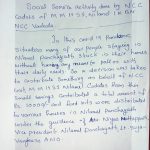 Social Service activity done by NCC
Cadets of M M H S S, Nilamel in
NCC Vadode
In this covid 19 Pandemic
Situation many of our people staying in
Nilamel Panchayath stuck in their homes
without having any means to go on with
their daily needs. So a decision was taken
to contribute something on behalf of NCC
unit M M H S S Nilamel. Cadets from their
Small savings contributed a total amount of
Rs 10000/- and food kits were distributed
to various families in Nilamel Panchayath
under the guidance of
Vice president Nilamel Panchayath